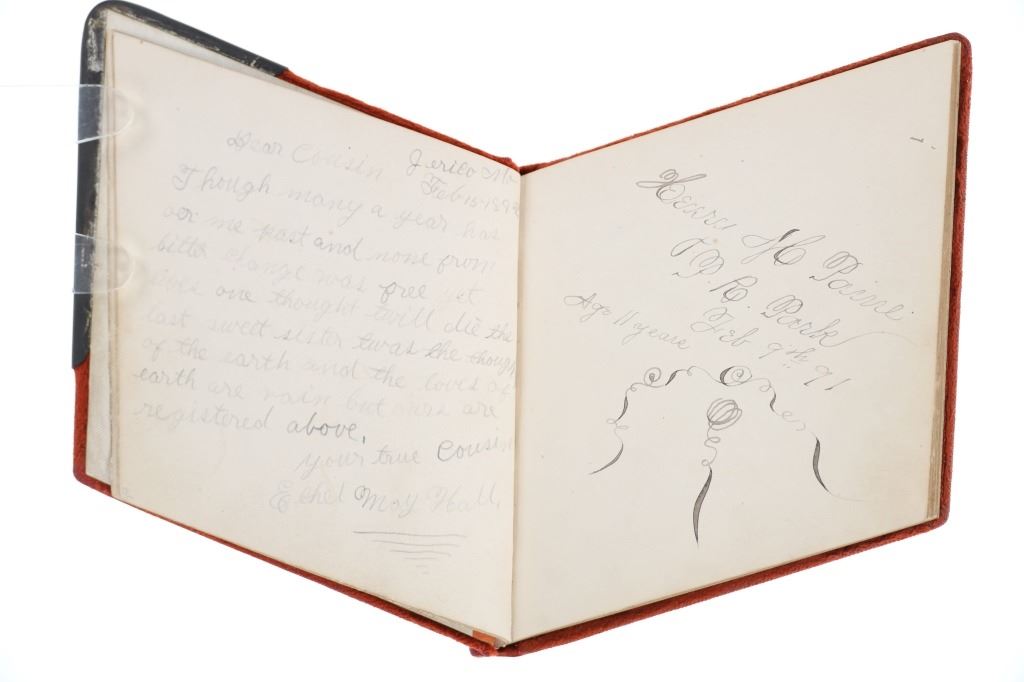 Dear Cousin Jerico Mo
Feb 15 189
Though many a year has
oer me past and none from
bitter change was free yet
lives one thought twill die the
last sweet sister twas the though
of the earth and the loves of
earth are vain but ours are
registered above.
your true Cousin
Ethel May Hall.
M Paine
P. R. Park
Feb 9th 91
Age 11 years